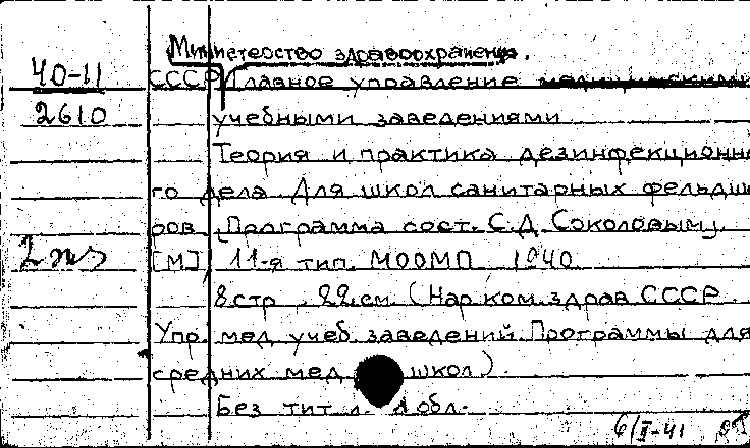 Министерство здравоохранения.
40-11 СССР Главное управление медицинскими
2610 учебными заведениями
Теория и практика дезинфекционно
го дела Для школ санитарных фельдше
ров [Программа сост. С.Д. Соколовым].
2 экз [М] 11-я тип. МООМП 1940
8 стр. 22 см. (Нар. ком. здрав СССР
Упр. мед. учеб. заведений. Программы для
средних мед. школ).
Без тит. л. и обл.
6/I-41